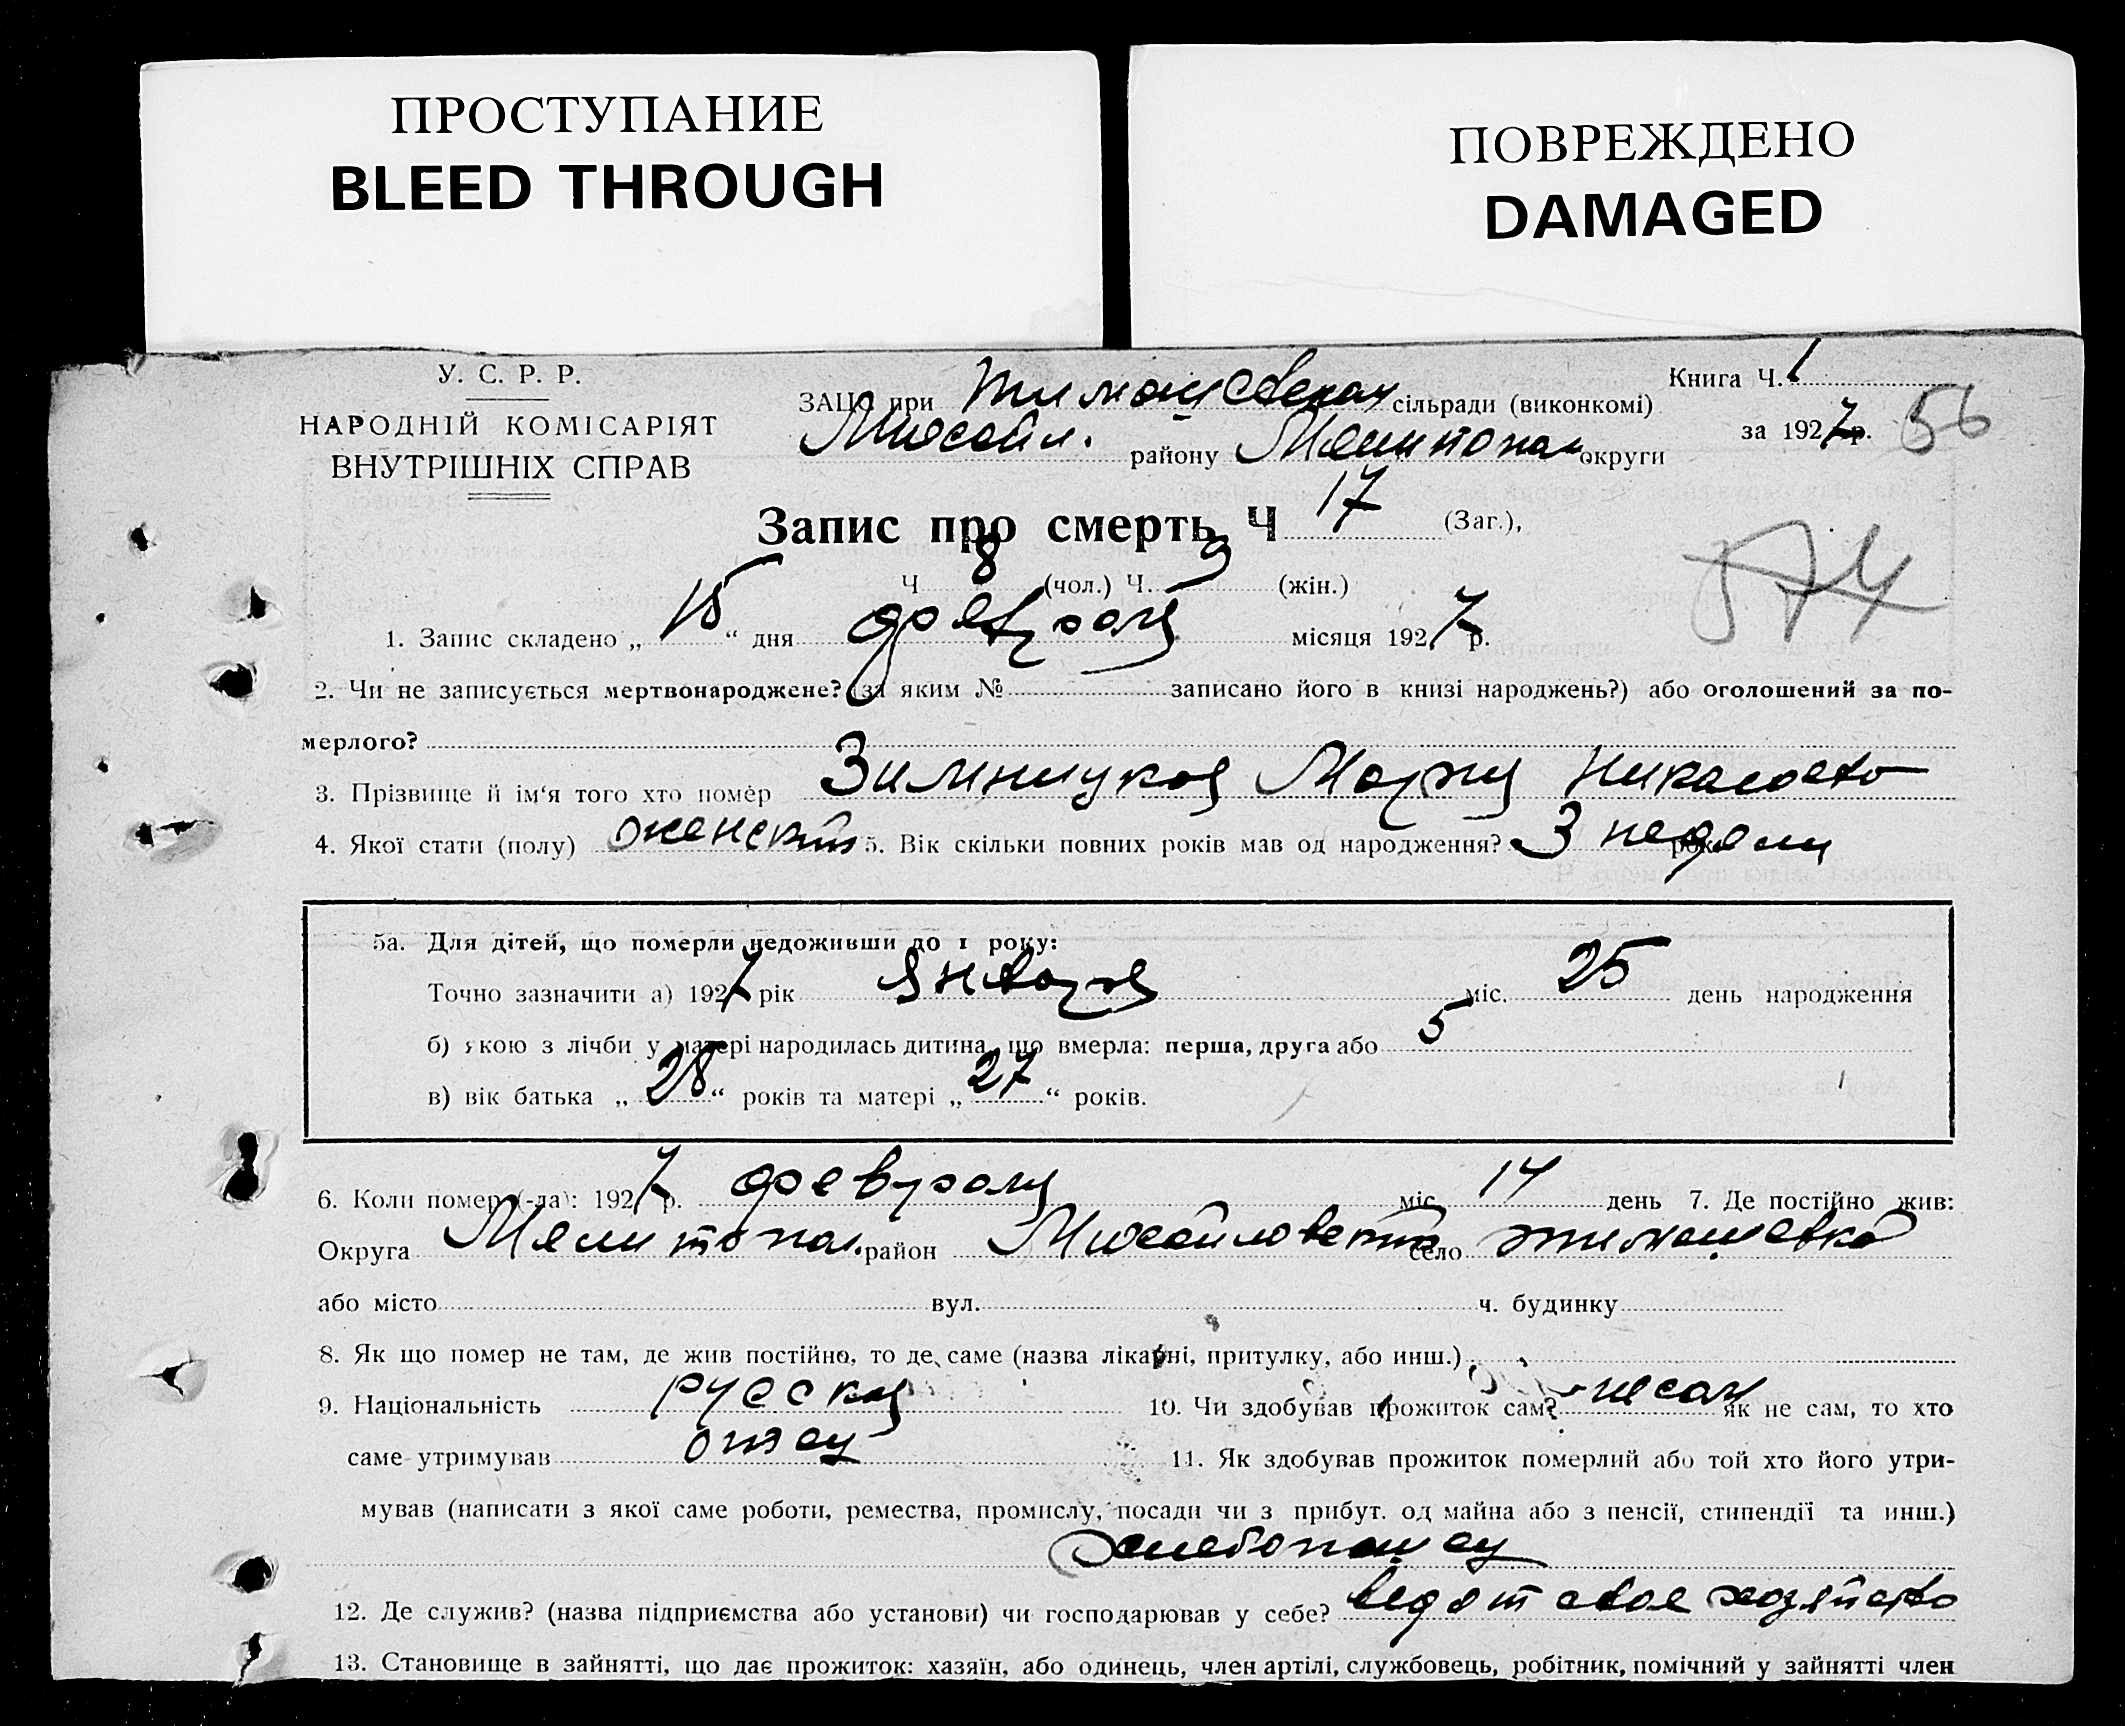 ПРОСТУПАНИЕ
BLEED THROUGH
ПОВРЕЖДЕНО
DAMAGED
У. С. Р. Р.
НАРОДНІЙ КОМІСАРІЯТ
ВНУТРІШНІХ СПРАВ
Книга Ч. 1
за 1927 р. 56
ЗАЦС при Тимошевской сільради (виконкомі)
Михайл. району Мелитопол округи
Запис про смерть Ч 17 (Заг.),
574
Ч 8 (чол.) Ч. 9 (жін.)
1. Запис складено „ 15 “ дня февраля місяця 1927 р.
2. Чи не записується мертвонароджене? (за яким № записано його в книзі народжень?) або оголошений за по-
мерлого?
3. Прізвище й ім‘я того хто помер Зимницкая Мария
4. Якої стати (полу) женский 5. Вік скільки повних років мав од народження? 3 недели
5а. Для дітей, що померли недоживши до 1 року:
Точно зазначити а) 1927 рік Января міс. 25 день народження
б) якою з лічби у матері народилась дитина, що вмерла: перша, друга або 5
в) вік батька „ 28 “ років та матері „ 27 “ років.
6. Коли помер (-ла): 1927 р. февраля міс. 14 день 7. Де постійно жив:
Округа Мелитопол. район Михайловский село Тимошевка
або місто вул. ч. будинку
8. Як що помер не там, де жив постійно, то де саме (назва лікарні, притулку, або инш.)
9. Національність руская 10. Чи здобував прожиток сам? несам як не сам, то хто
саме утримував отец 11. Як здобував прожиток померлий або той хто його утри-
мував (написати з якої саме роботи, ремества, промислу, посади чи з прибут. од майна або з пенсії, стипендії та инш.)
Хлебопашец
12. Де служив? (назва підприємства або установи) чи господарював у себе? ведет свое хозяйство
13. Становище в зайнятті, що дає прожиток: хазяїн, або одинець, член артілі, службовець, робітник, помічний у зайнятті член